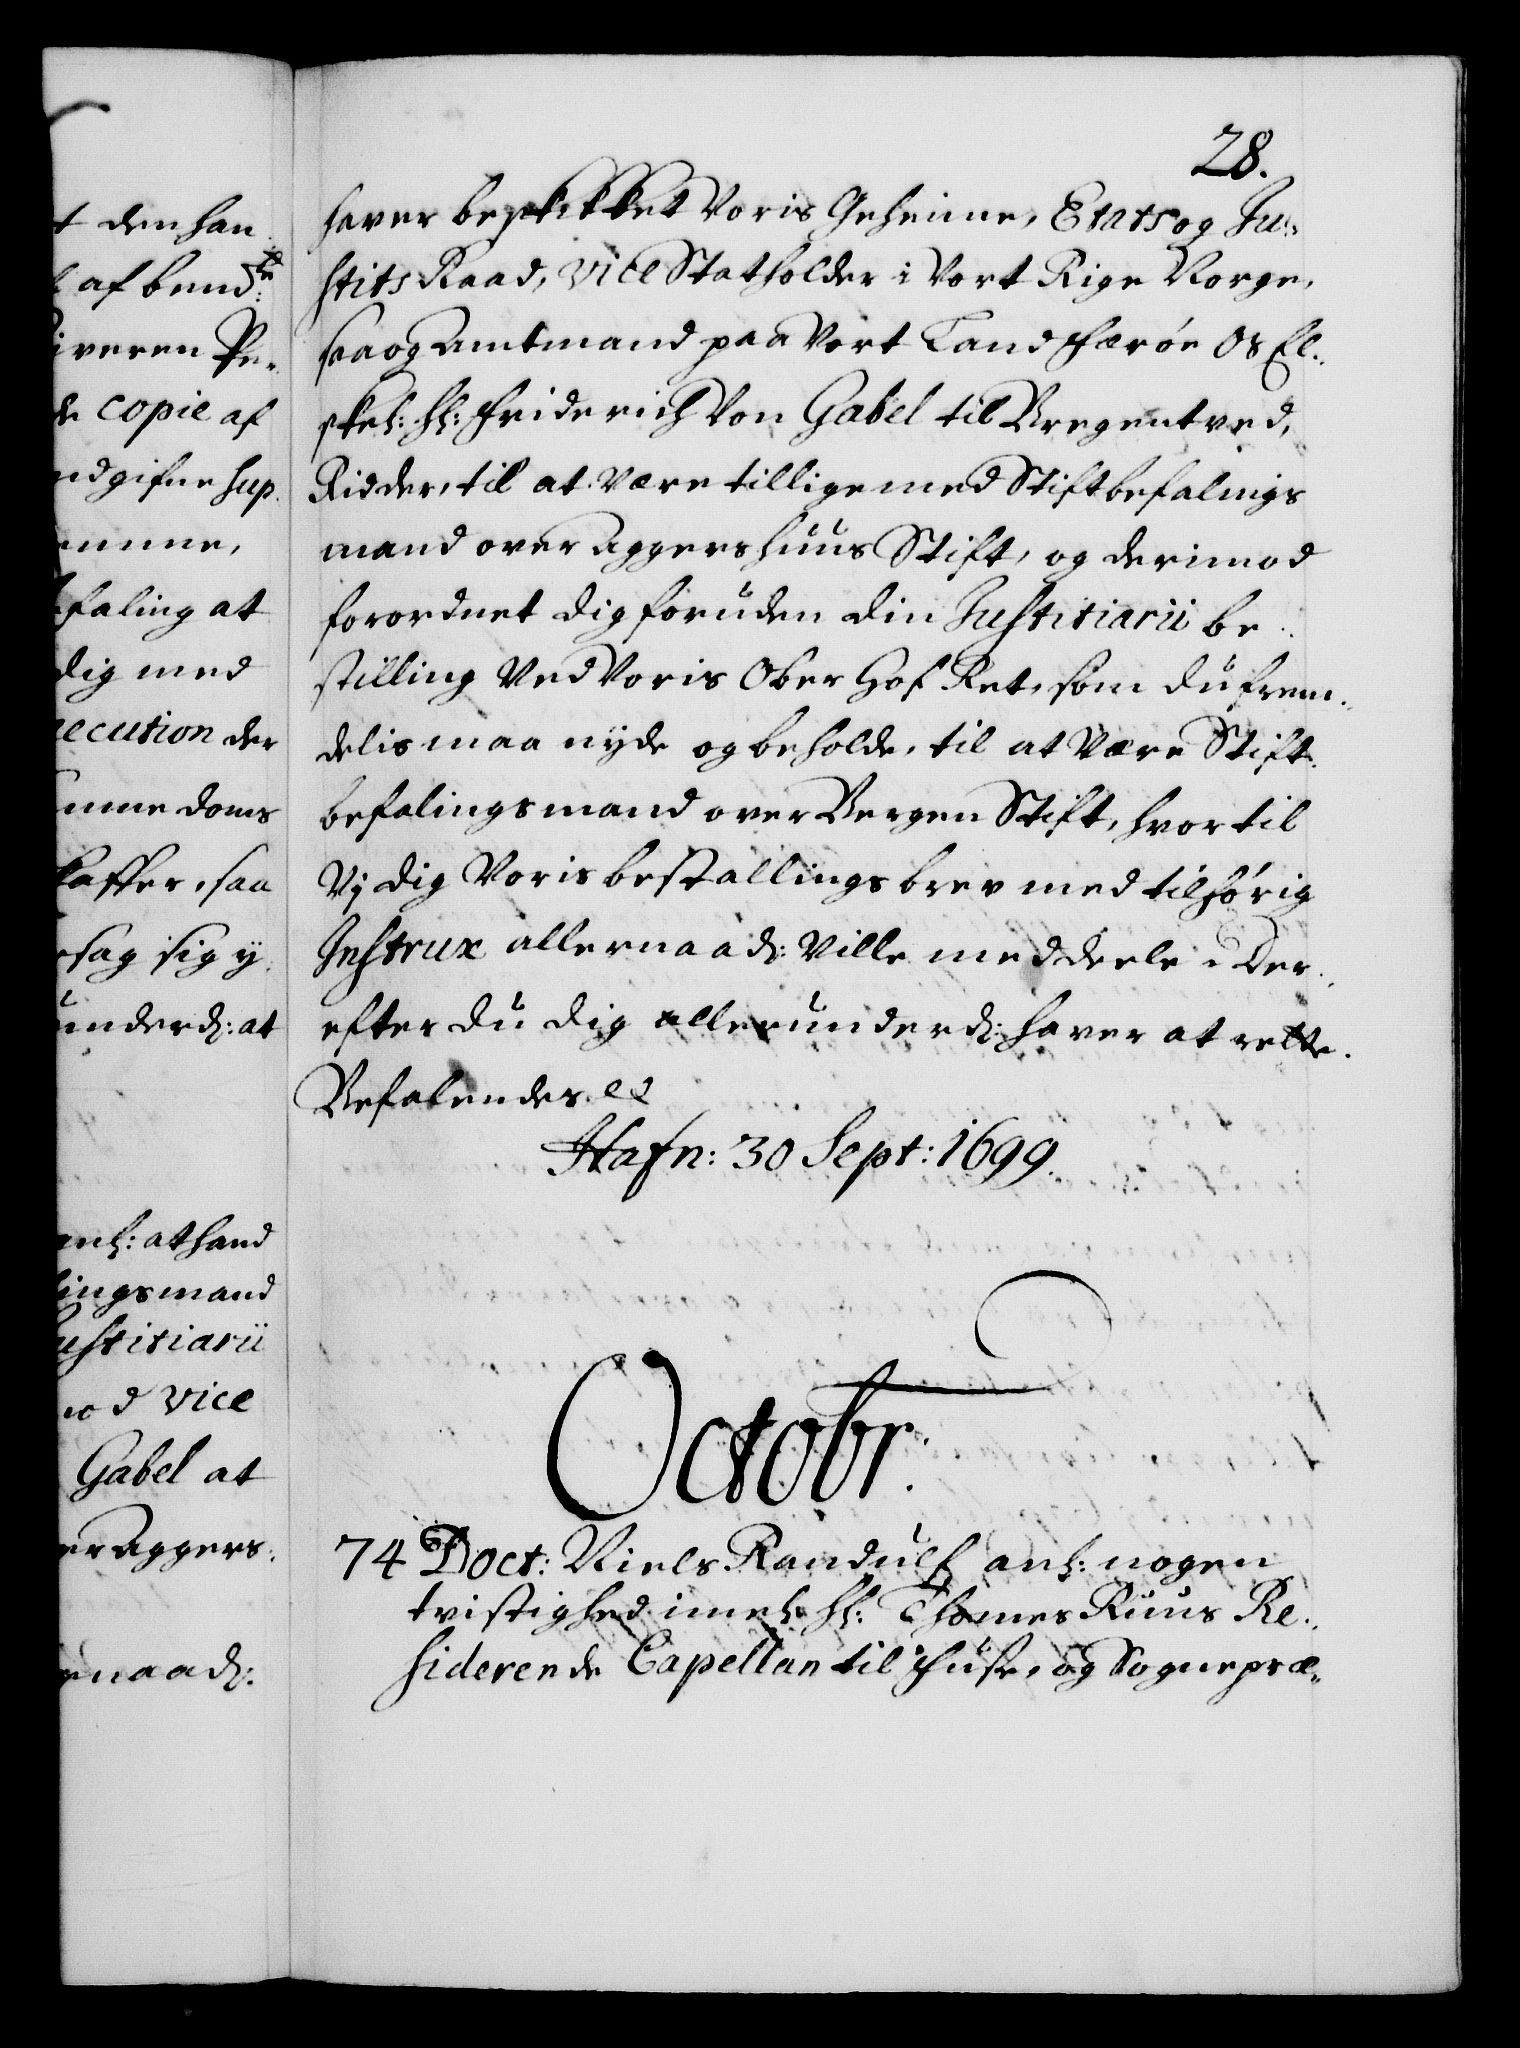 t den han
l af bemdte
iveren Pe-
de copie af
ndgifne sup
emme,
efaling at
dig med
xecution der
mme doms
kaffer, saa
sag sig y
underd: at
anl: at hand
lingsmand
ustitiarii
mod vice
Gabel at
er Aggers:
ernaad:
28.
hafver beskikket Voris Geheime, Etats og Ju-
stits Raad, vice Statholder i Vort Rige Norge,
saa og Amtmand paa Vort Land Færöe Os El-
skel: Hl: Friderich Von Gabel til Bregentved,
Ridder, til at være tillige med Stiftbefalings
mand over Aggershuus Stift, og derimod
forordnet dig foruden din Justitiarii be-
stilling Ved Voris Ober Hof Ret, som du frem-
delis maa nyde og beholde, til at Være Stift
befalingsmand over Bergen Stift, hvortil
Vj dig Voris bestallings brev med tilhörig
Instrux allernaad: Ville meddeele. Der-
efter du dig allerunderd: haver at rette.
Befalendes etc
Hafn: 30 Sept: 1699.
Octobr:
74 Doct: Niels Randulf anl: nogen
tvistighed imel: Hl: Thomes Ruus Re-
siderende Capellan til Fuse, og Sognepræ-